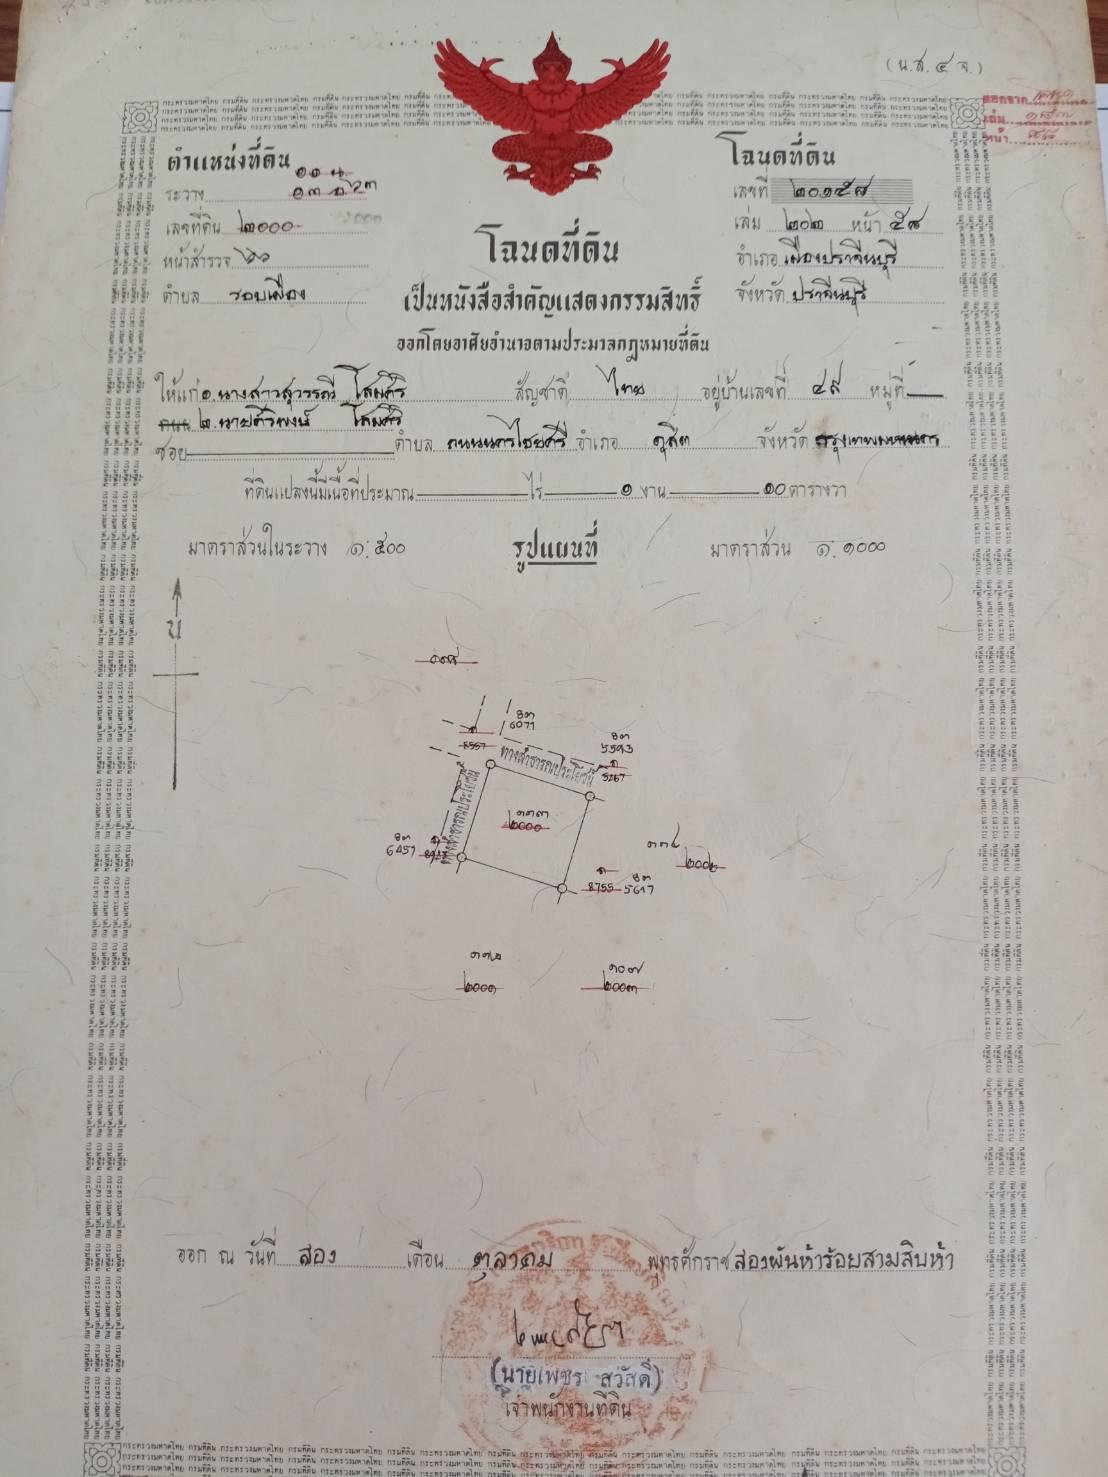 (น.ส. ๔ จ.)
ตำแหน่งที่ดิน
ระวาง
เลขที่ดิน ๒๐๐๐
หน้าสำรวจ ๖๖
ตำบล รอบเมือง
โฉนดที่ดิน
เลขที่ ๒๐๑๕๘
เล่ม ๒๐๒ หน้า ๕๘
อำเภอ เมืองปราจีนบุรี
จังหวัด ปราจีนบุรี
โฉนดที่ดิน
เป็นหนังสือสำคัญแสดงกรรมสิทธิ์
ออกโดยอาศัยอำนาจตามประมวลกฎหมายที่ดิน
ให้แก่ ๑. นางสาวสุวรรณี โสมศิริ สัญชาติ ไทย อยู่บ้านเลขที่ ๔๙ หมู่ที่
ถนน ๒. นายศิริพงษ์ โสมศิริ
ซอย ตำบล ถนนนครไชยศรี อำเภอ ดุสิต จังหวัด กรุงเทพมหานคร
ที่ดินแปลงนี้มีเนื้อที่ประมาณ ไร่ ๑ งาน ๑๐ ตารางวา
มาตราส่วนในระวาง ๑:๕๐๐ รูปแผนที่ มาตราส่วน ๑:๑๐๐๐
น
ทางสาธารณประโยชน์
ทางสาธารณประโยชน์
6077
5593
5267
๑๑๓
๒๐๐๐
6457
๑๑๔
๒๐๐๒
8755 5617
๑๑๒
๒๐๐๑
๑๐๗
๒๐๐๓
ออก ณ วันที่ สอง เดือน ตุลาคม พุทธศักราช สองพันห้าร้อยสามสิบห้า
(นายเพชร สวัสดิ์)
เจ้าพนักงานที่ดิน